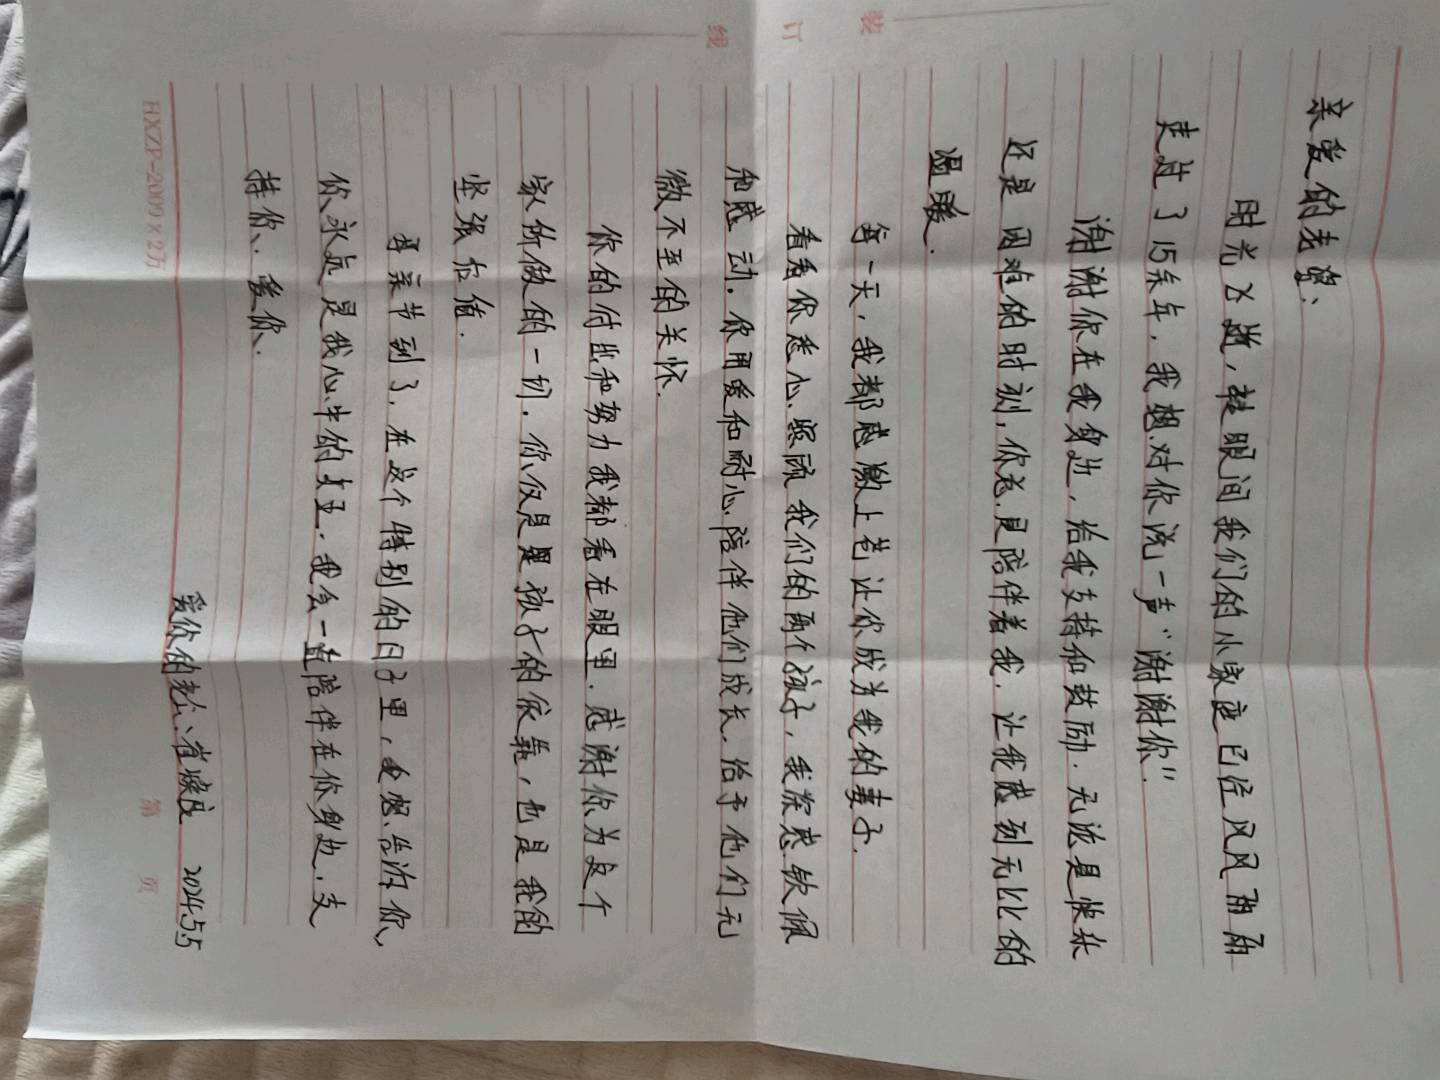 装
订
线
亲爱的老婆、
时光飞逝，转眼间我们的小家庭已经风风雨雨
走过了15余年，我想对你说一声“谢谢你”.
谢谢你在我身边，给我支持和鼓励.无论是快乐
还是困难的时刻，你总是陪伴着我，让我感到无比的
温暖.
每一天，我都感激上苍让你成为我的妻子.
看着你悉心照顾我们的两个孩子，我深感钦佩
和感动.你用爱和耐心陪伴他们成长，给予他们无
微不至的关怀.
你的付出和努力我都看在眼里.感谢你为这个
家所做的一切.你不仅是孩子的依靠，也是我的
坚强后盾.
母亲节到了，在这个特别的日子里，我想告诉你，
你永远是我心中的女王.我会一直陪伴在你身边，支
持你、爱你.
爱你的老公、 2024.5.5
HXZP-2009×2万
第 页